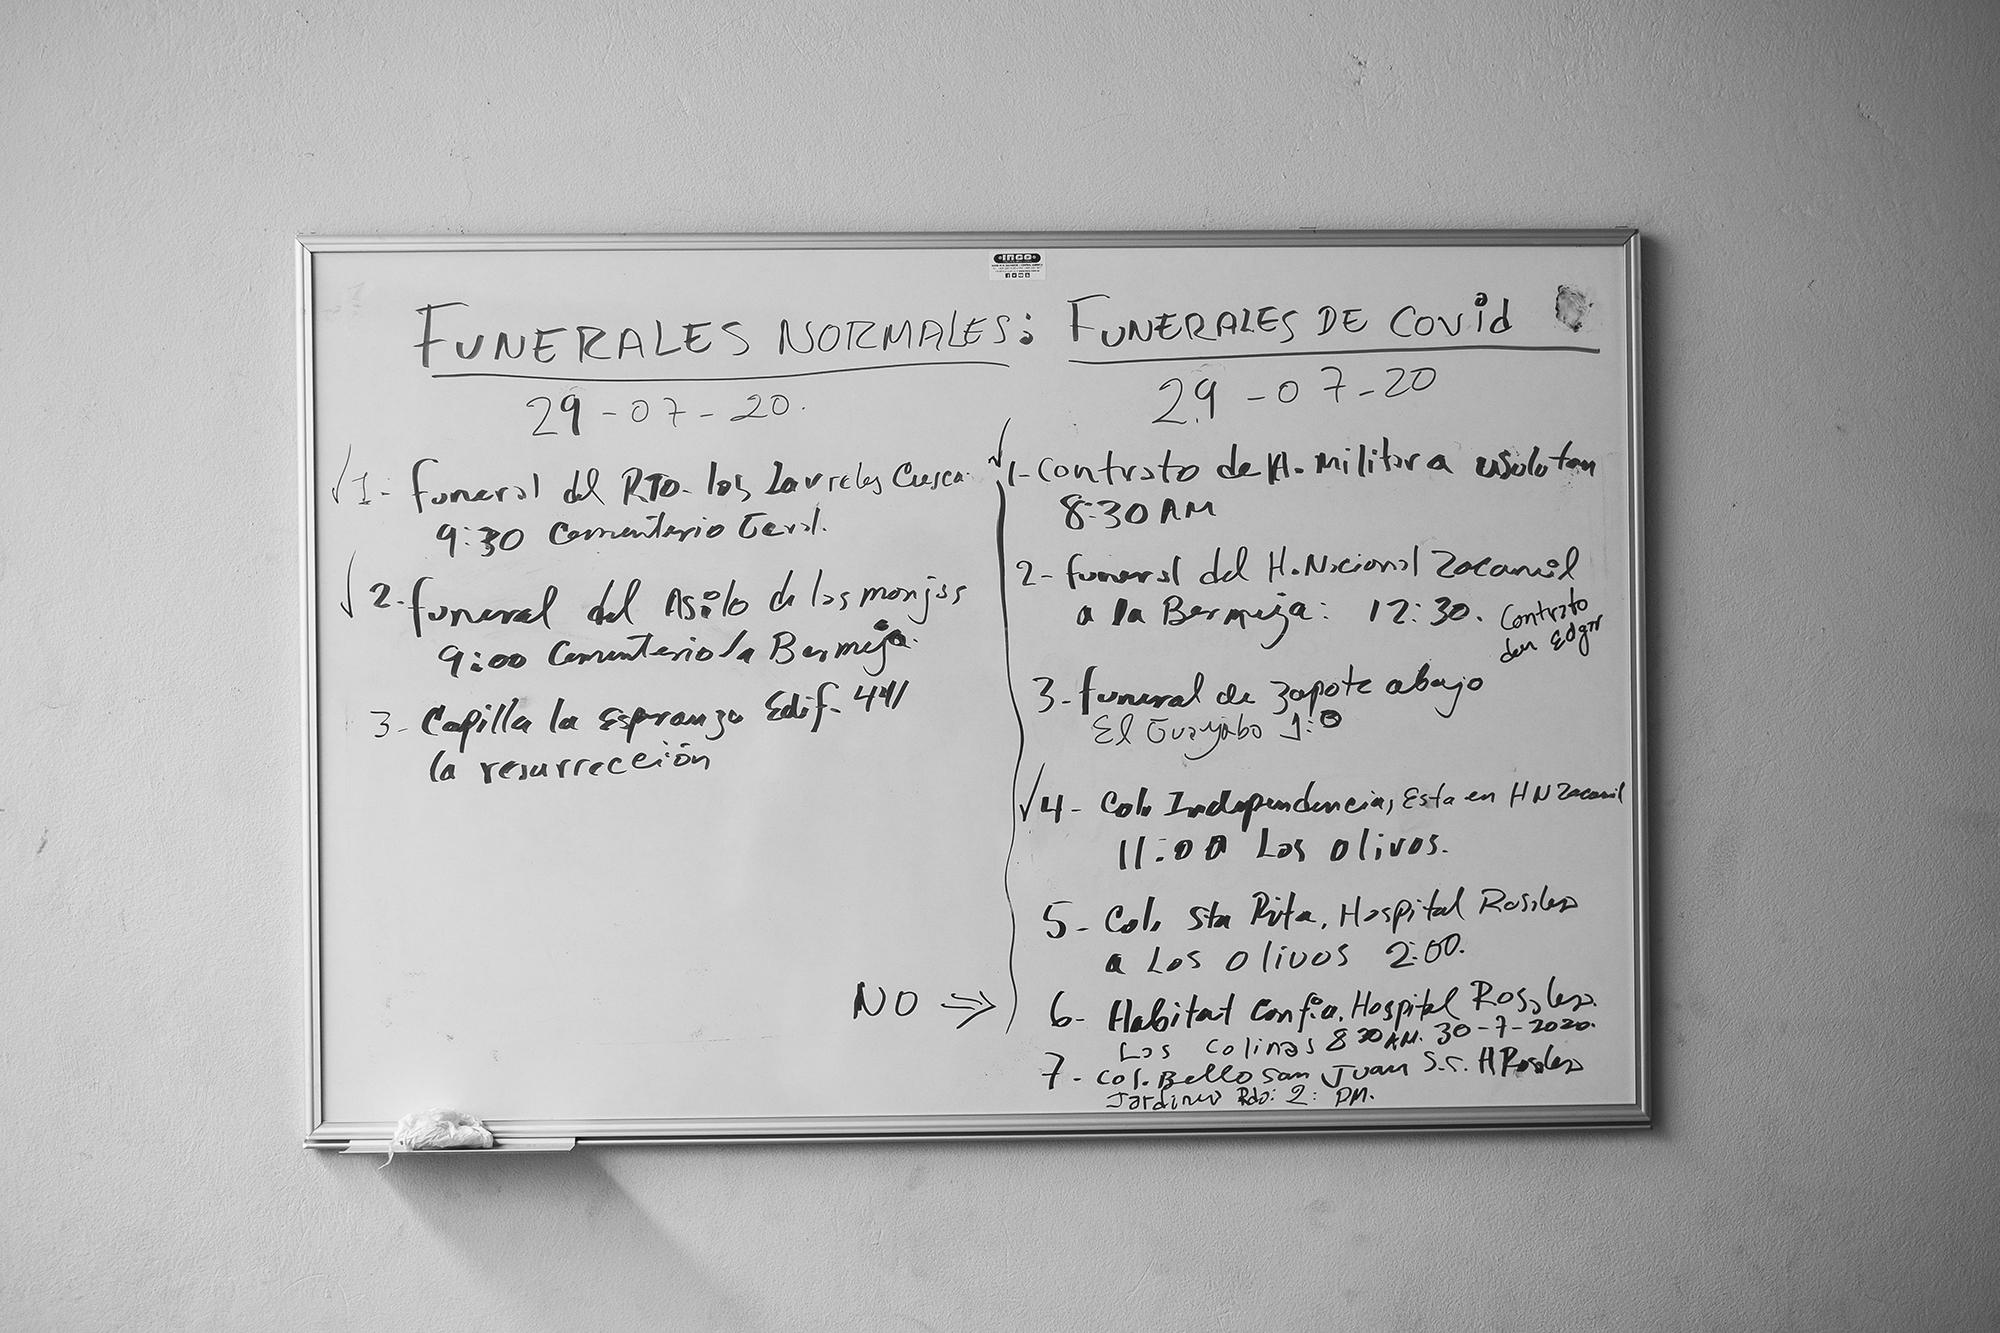 INCO
FUNERALES NORMALES:
29-07-20.
√1- funeral del RTO. los Laureles Cusca.
9:30 Cementerio Geral.
√2- funeral del Asilo de las monjas
9:00 Cementerio la Bermeja.
3- Capilla la Esperanza Edif. 441
la resurrección
NO ⇒
FUNERALES DE COVid
29-07-20
√1- Contrato de H. Militar a usulutan
8:30 AM
2- funeral del H. Nacional Zacamil
a la Bermeja: 12:30. Contrato
don Edgar
3- funeral de Zapote abajo
El Guayabo 1:0
√4- Col. Independencia, Esta en HN Zacamil
11:00 Los Olivos.
5- Col. Sta Rita, Hospital Rosales
a Los Olivos 2:00.
6- Habitat Confia. Hospital Rosales.
Las Colinas 8 30 AM. 30-7-2020.
7- Col. Bello San Juan S.S. H Rosales
Jardines Rdo: 2: PM.